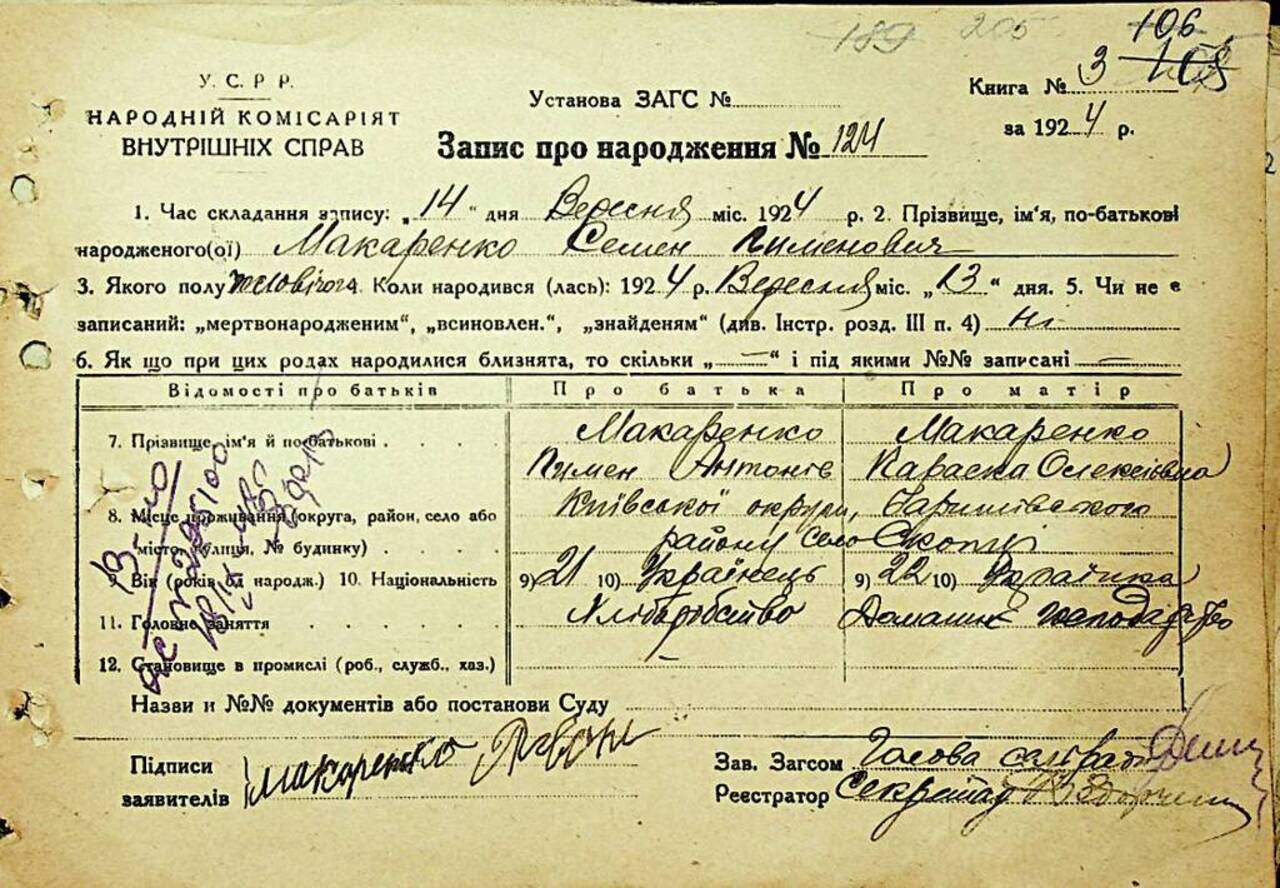 189 205 106
У. С. Р. Р.
НАРОДНІЙ КОМІСАРІЯТ
ВНУТРІШНІХ СПРАВ
Установа ЗАГС №
Книга № 3 108
за 1924 р.
Запис про народження № 124
1. Час складання запису: „14" дня Вересня міс. 1924 р. 2. Прізвище, ім'я, по-батькові
народженого(ої) Макаренко Семен Пименович
3. Якого полу чоловічого 4. Коли народився (лась): 1924 р. Вересня міс. „13" дня. 5. Чи не є
записаний: „мертвонародженим", „всиновлен.", „знайденям" (див. Інстр. розд. III п. 4) Ні
6. Як що при цих родах народилися близнята, то скільки „—" і під якими №№ записані —
Відомості про батьків Про батька Про матір
7. Прізвище, ім'я й по-батькові Макаренко Макаренко
Пимен Антонів Параска Олексіївна
8. Місце проживання (округа, район, село або Київської округи, Баришівського
місто, вулиця, № будинку) району село Скопці
9. Вік (років од народж.) 10. Національність 9) 21 10) Українець 9) 22 10) Українка
11. Головне заняття Хліборобство Домашнє господарство
12. Становище в промислі (роб., служб., хаз.)
Назви и №№ документів або постанови Суду
Підписи
заявителів Макаренко
Зав. Загсом Голова сельради
Реєстратор Секретар